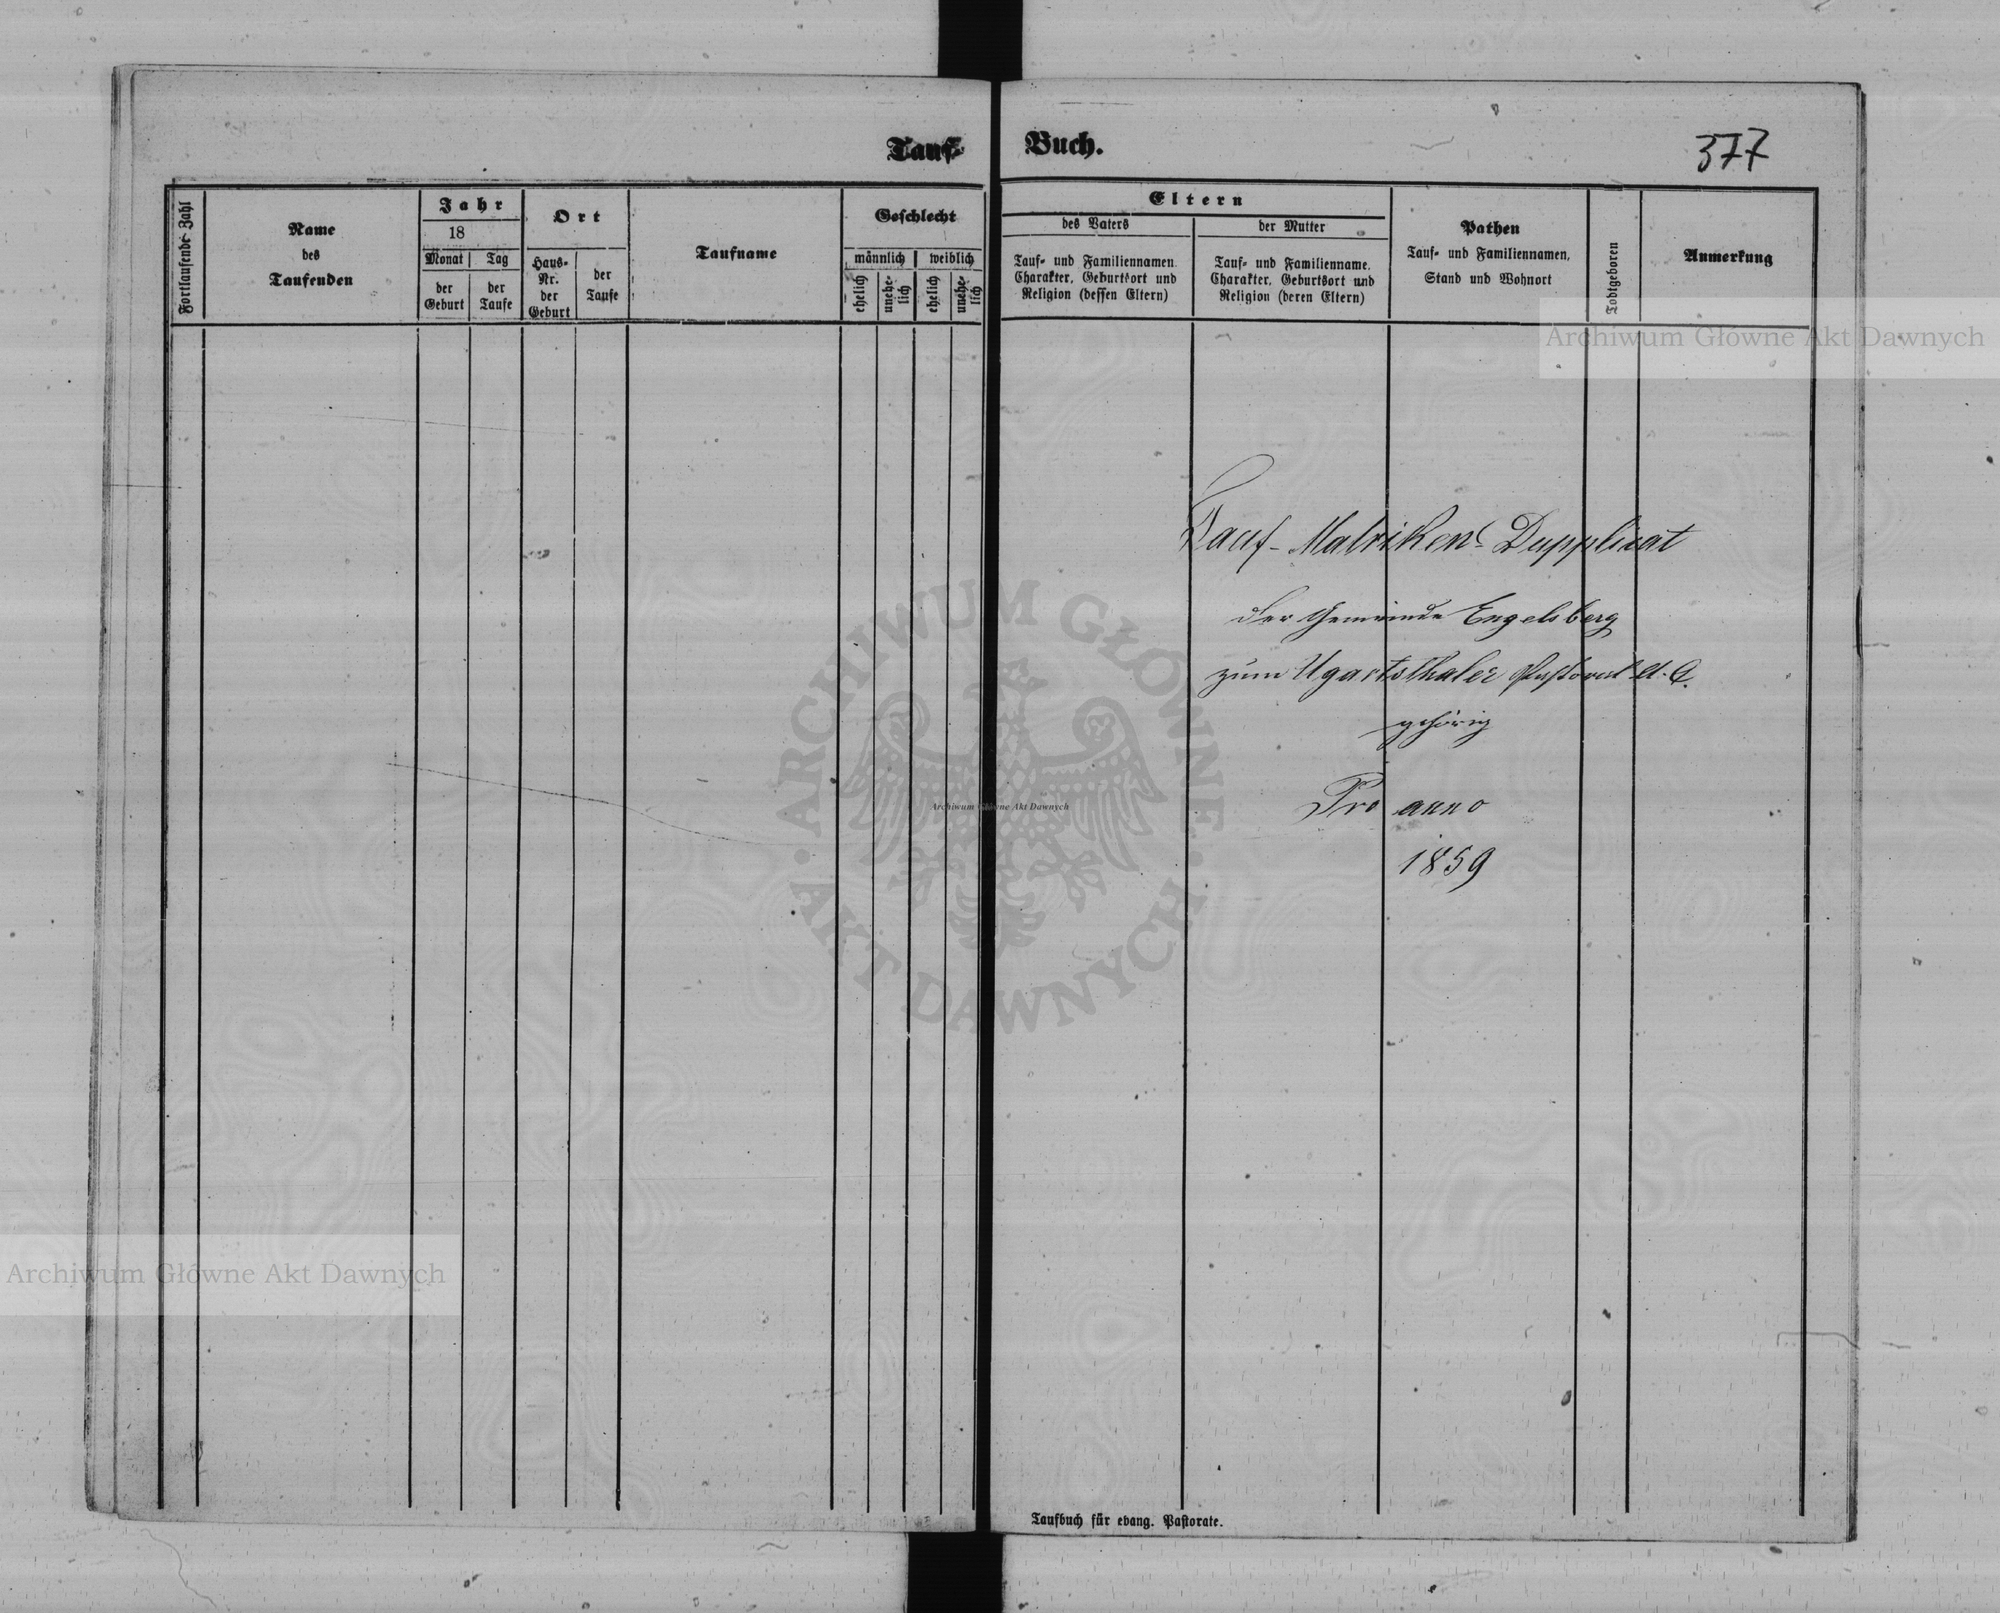 Tauf-Buch.
377
Fortlaufende Zahl
Name
des
Taufenden
Jahr
18
Monat
Tag
der
Geburt
der
Taufe
Ort
Haus-
Nr.
der
Geburt
der
Taufe
Taufname
Geschlecht
männlich
weiblich
ehelich
unehe-
lich
ehelich
unehe-
lich
Eltern
des Vaters
der Mutter
Tauf- und Familiennamen
Charakter, Geburtsort und
Religion (dessen Eltern)
Tauf- und Familienname,
Charakter, Geburtsort und
Religion (deren Eltern)
Pathen
Tauf- und Familiennamen,
Stand und Wohnort
Todtgeboren
Anmerkung
Archiwum Główne Akt Dawnych
Tauf-Matriken-Dupplicat
der Gemeinde Engelsberg
zum Ugartsthaler Pastorat A. C.
gehörig
Pro anno
1859
ARCHIWUM GŁÓWNE
AKT DAWNYCH
Archiwum Główne Akt Dawnych
Archiwum Główne Akt Dawnych
Taufbuch für evang. Pastorate.